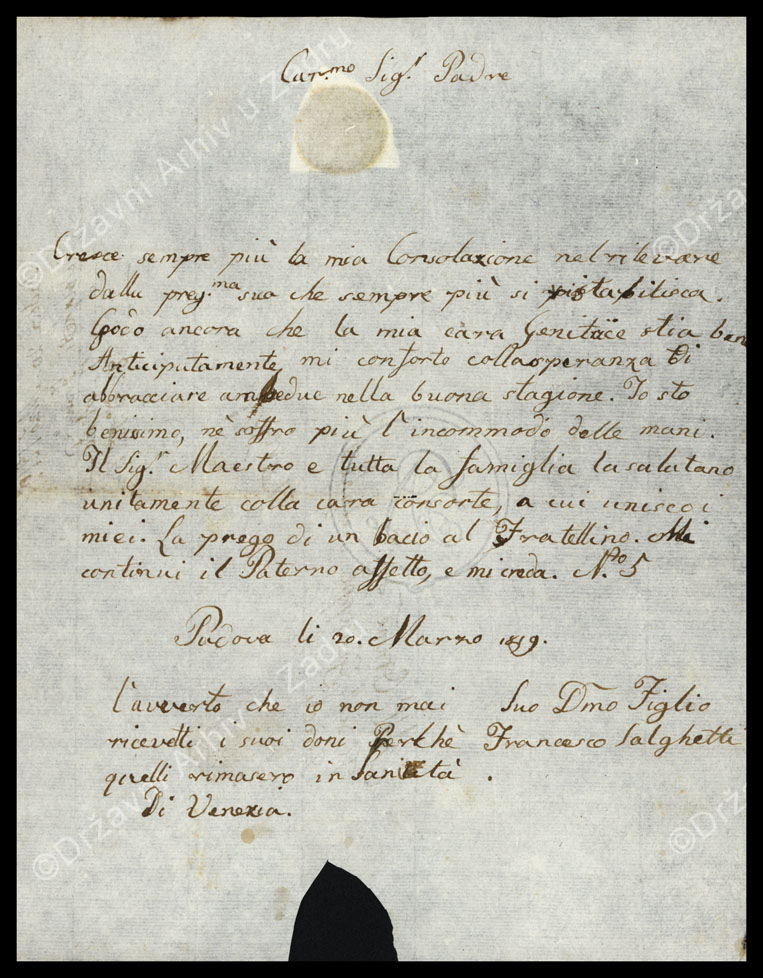 Car.mo Sig.r Padre
Cresce sempre più la mia Consolazione nel rilevare
dalla preg.ma sua che sempre più si ristabilisca.
Godo ancora che la mia cara Genitrice stia bene
Anticipatamente mi conforto colla speranza di
abbracciare ambedue nella buona stagione. Io sto
benissimo, nè soffro più l'incommodo delle mani.
Il Sig.r Maestro e tutta la famiglia la salutano
unitamente colla cara consorte, a cui unisco i
miei. La prego di un bacio al Fratellino. Mi
continui il Paterno affetto, e mi creda. N.to 5
Padova li 20. Marzo 1819.
l'avverto che io non mai
ricevetti i suoi doni Perchè
quelli rimasero in Sanità
Di Venezia.
Suo Dmo Figlio
Francesco Salghetti
©Državni Arhiv u Zadru
©Državni Arhiv u Zadru
©Državni
©Državni